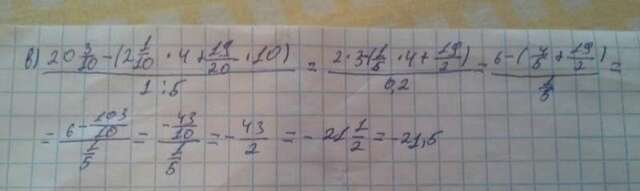 в) (20 3/10 - (2 1/10 · 4 + 19/20 · 10)) / (1 : 5) = (2 · 3 - (1/5 · 4 + 19/2)) / 0,2 = (6 - (4/5 + 19/2)) / (1/5) =
= (6 - 103/10) / (1/5) = (-43/10) / (1/5) = - 43/2 = - 21 1/2 = -21,5